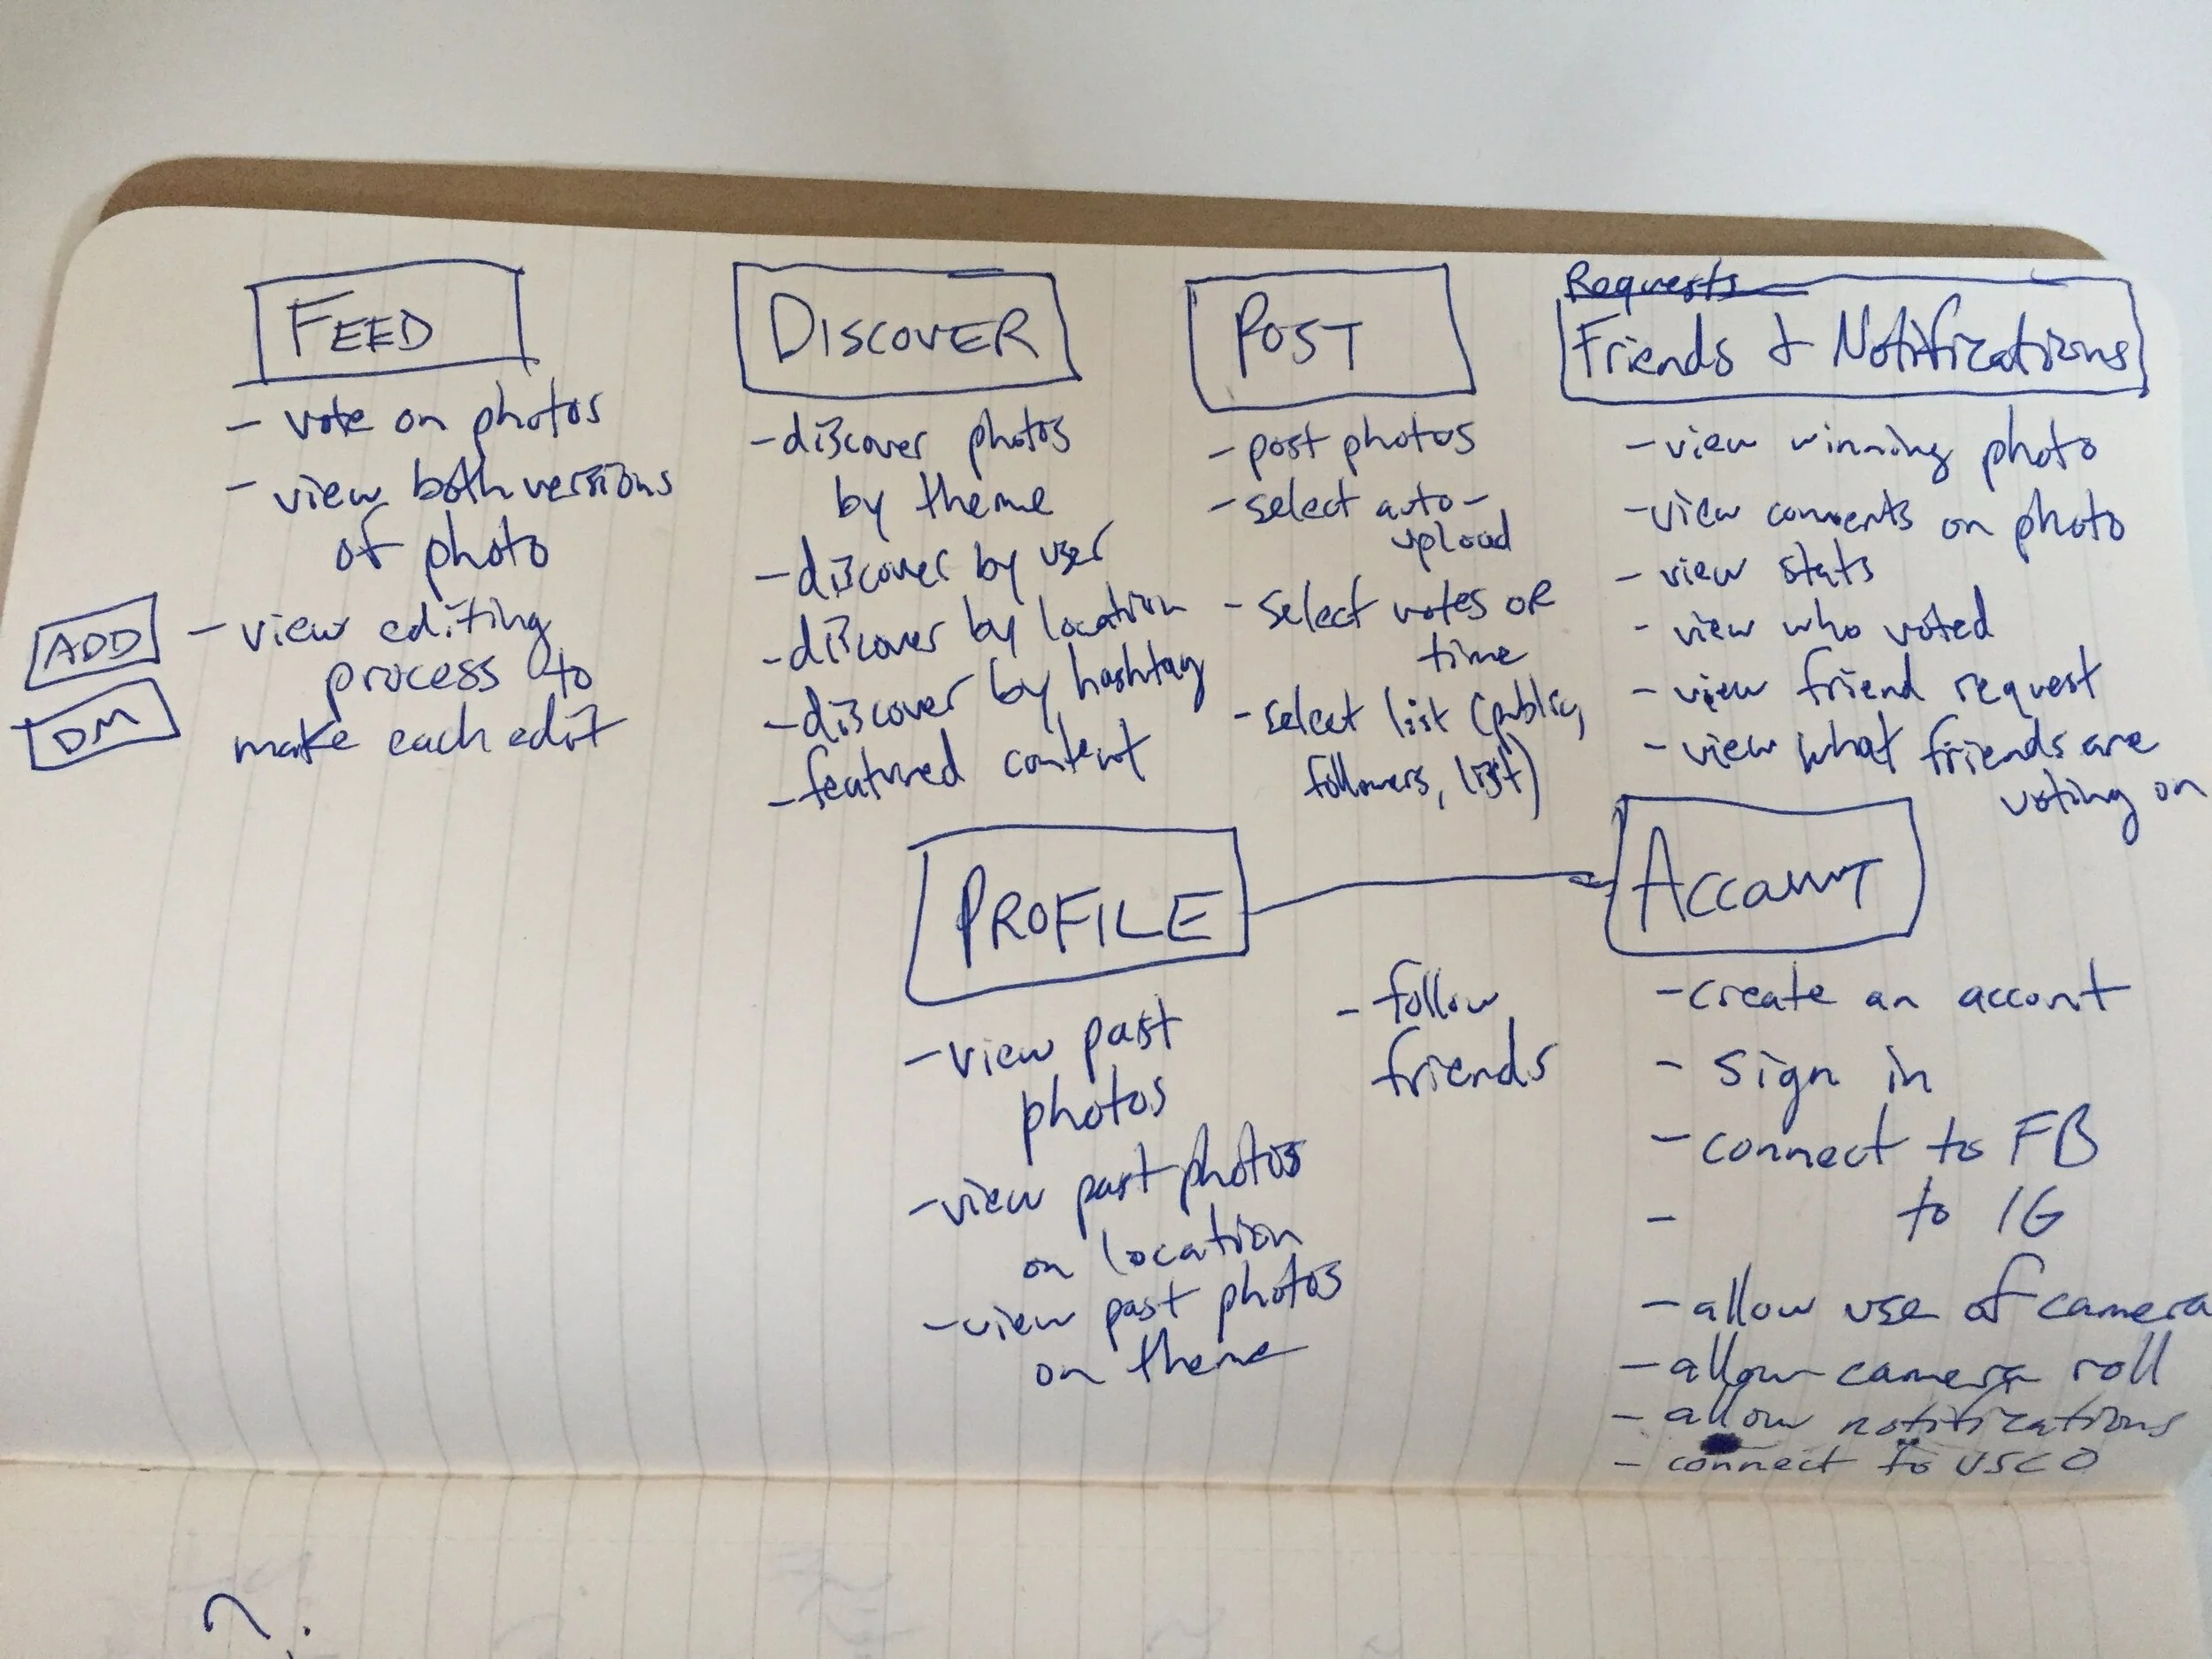 FEED
- vote on photos
- view both versions
of photo
ADD
DM
- view editing
process to
make each edit
DISCOVER
- discover photos
by theme
- discover by user
- discover by location
- discover by hashtag
- featured content
POST
- post photos
- select auto-
upload
- select votes OR
time
- select list (public,
followers, list)
Requests
Friends & Notifications
- view winning photo
- view comments on photo
- view stats
- view who voted
- view friend request
- view what friends are
voting on
PROFILE
- view past
photos
- view past photos
on location
- view past photos
on theme
- follow
friends
ACCOUNT
- create an account
- sign in
- connect to FB
- to IG
- allow use of camera
- allow camera roll
- allow notifications
- connect to VSCO